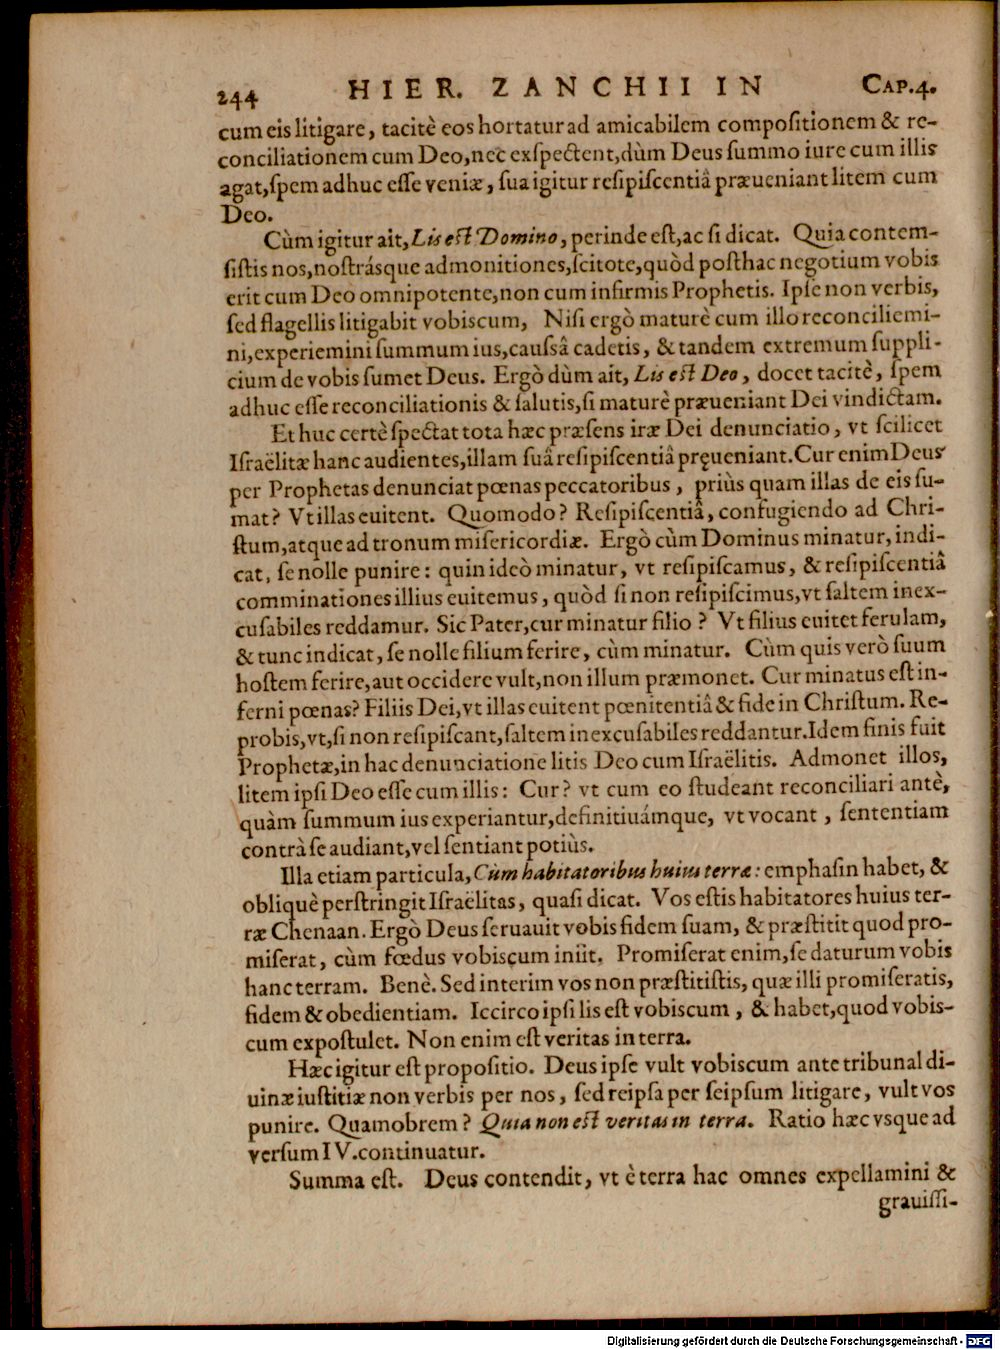 244 HIER. ZANCHII IN CAP.4.
cum eis litigare, tacitè eos hortatur ad amicabilem compoſitionem & re-
conciliationem cum Deo, nec exſpectent, dùm Deus ſummo iure cum illis
agat, ſpem adhuc eſſe veniæ, ſua igitur reſipiſcentiâ præueniant litem cum
Deo.
Cùm igitur ait, Lis eſt Domino, perinde eſt, ac ſi dicat. Quia contem-
ſiſtis nos, noſtrásque admonitiones, ſcitote, quòd poſthac negotium vobis
erit cum Deo omnipotente, non cum infirmis Prophetis. Ipſe non verbis,
ſed flagellis litigabit vobiscum, Niſi ergò maturè cum illo reconciliemi-
ni, experiemini ſummum ius, cauſsâ cadetis, & tandem extremum ſuppli-
cium de vobis ſumet Deus. Ergò dùm ait, Lis eſt Deo, docet tacitè, ſpem
adhuc eſſe reconciliationis & ſalutis, ſi maturè præueniant Dei vindictam.
Et huc certè ſpectat tota hæc præſens iræ Dei denunciatio, vt ſcilicet
Iſraëlitæ hanc audientes, illam ſuâ reſipiſcentiâ pręueniant. Cur enim Deus
per Prophetas denunciat pœnas peccatoribus, priùs quam illas de eis ſu-
mat? Vt illas euitent. Quomodo? Reſipiſcentiâ, confugiendo ad Chri-
ſtum, atque ad tronum miſericordiæ. Ergò cùm Dominus minatur, indi-
cat, ſe nolle punire: quin ideò minatur, vt reſipiſcamus, & reſipiſcentiâ
comminationes illius euitemus, quòd ſi non reſipiſcimus, vt ſaltem inex-
cuſabiles reddamur. Sic Pater, cur minatur filio? Vt filius euitet ferulam,
& tunc indicat, ſe nolle filium ferire, cùm minatur. Cùm quis verò ſuum
hoſtem ferire, aut occidere vult, non illum præmonet. Cur minatus eſt in-
ferni pœnas? Filiis Dei, vt illas euitent pœnitentiâ & fide in Chriſtum. Re-
probis, vt, ſi non reſipiſcant, ſaltem inexcuſabiles reddantur. Idem finis fuit
Prophetæ, in hac denunciatione litis Deo cum Iſraëlitis. Admonet illos,
litem ipſi Deo eſſe cum illis: Cur? vt cum eo ſtudeant reconciliari antè,
quàm ſummum ius experiantur, definitiuámque, vt vocant, ſententiam
contrà ſe audiant, vel ſentiant potiùs.
Illa etiam particula, Cùm habitatoribus huius terræ: emphaſin habet, &
obliquè perſtringit Iſraëlitas, quaſi dicat. Vos eſtis habitatores huius ter-
ræ Chenaan. Ergò Deus ſeruauit vobis fidem ſuam, & præſtitit quod pro-
miſerat, cùm fœdus vobiscum iniit. Promiſerat enim, ſe daturum vobis
hanc terram. Benè. Sed interim vos non præſtitiſtis, quæ illi promiſeratis,
fidem & obedientiam. Iccirco ipſi lis eſt vobiscum, & habet, quod vobis-
cum expoſtulet. Non enim eſt veritas in terra.
Hæc igitur eſt propoſitio. Deus ipſe vult vobiscum ante tribunal di-
uinæ iuſtitiæ non verbis per nos, ſed reipſa per ſeipſum litigare, vult vos
punire. Quamobrem? Quia non eſt veritas in terra. Ratio hæc vsque ad
verſum IV. continuatur.
Summa eſt. Deus contendit, vt è terra hac omnes expellamini &
grauiſſi-
Digitalisierung gefördert durch die Deutsche Forschungsgemeinschaft - DFG